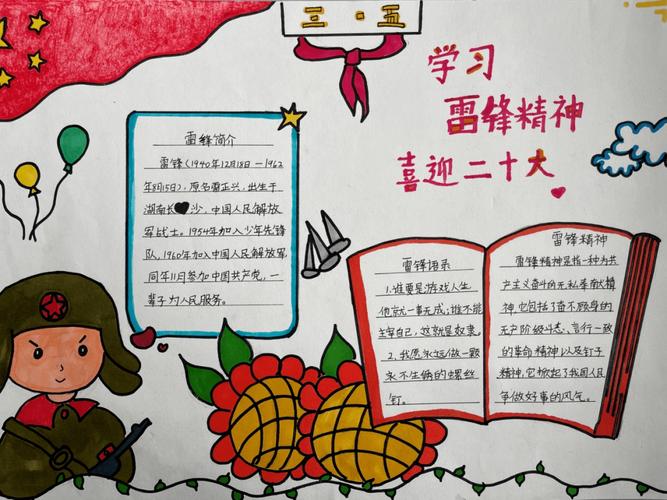 三·五
学习
雷锋精神
喜迎二十大
雷锋简介
雷锋(1940年12月18日—1962
年8月15日),原名雷正兴,出生于
湖南长沙,中国人民解放
军战士。1954年加入少年先锋
队,1960年加入中国人民解放军
同年11月参加中国共产党,一
辈子为人民服务。
雷锋语录
1.谁要是游戏人生
他就一事无成;谁不能
主宰自己,这就是奴隶。
2、我愿永远做一颗
永不生锈的螺丝
钉。
雷锋精神
雷锋精神是指一种为共
产主义奋斗的无私奉献精
神,它包括了奋不顾身的
无产阶级斗志、言行一致
的革命精神以及钉子
精神,它掀起了我国人民
争做好事的风气。